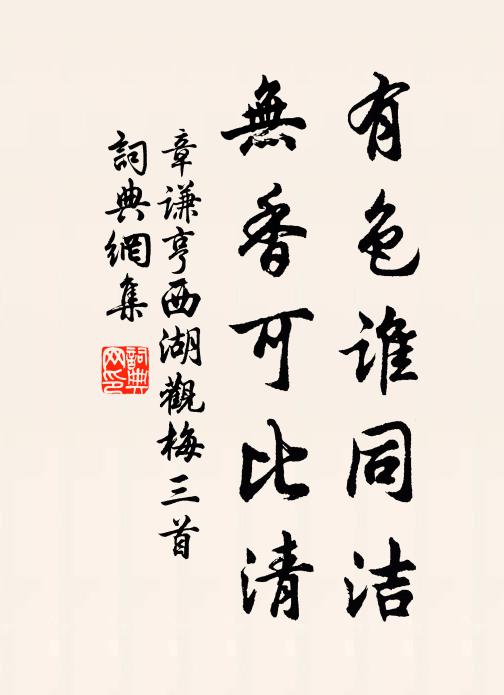 有色谁同洁
無香可比清
章谦亨西湖觀梅三首
詞典網集
詞典网印